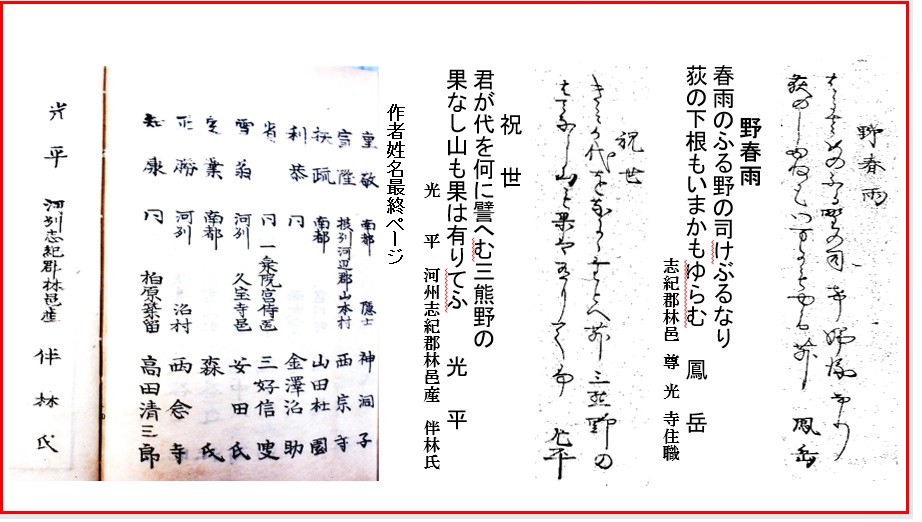 野春雨
鳳岳
野春雨
春雨のふる野の司けぶるなり
荻の下根もいまかもゆらむ 鳳岳
志紀郡林邑 尊光寺住職
祝世
光平
祝世
君が代を何に譬へむ三熊野の
果なし山も果は有りてふ 光平
光平 河州志紀郡林邑産 伴林氏
作者姓名最終ページ
重敬 南都 隠士 神洞子
河辺郡山本村 西宗寺
南都 山田杜園
利恭 同 金澤治助
同 一乗院宮侍医 三好信叟
雪翁 河列 久宝寺邑 安田氏
南都 森氏
正勝 河列 沼村 西念寺
知康 同 柏原築留 高田清三郎
光平 河列志紀郡林邑産 伴林氏